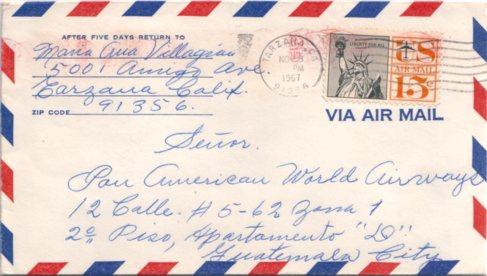 AFTER FIVE DAYS RETURN TO
Maria Ana Villagran
5001 Ave.
Tarzana Calif.
ZIP CODE 91356.
TARZANA, CA
NOV
PM
1967
91356
LIBERTY FOR ALL
US
AIR MAIL
15¢
VIA AIR MAIL
Señor.
Pan American World Airways
12 Calle. #5-62 Zona 1
2o Piso, Apartamento "D"
Guatemala City